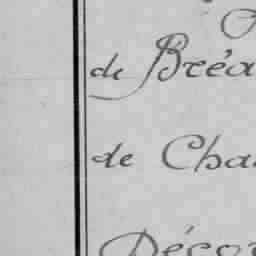 de Bréa
de Cha
Décor